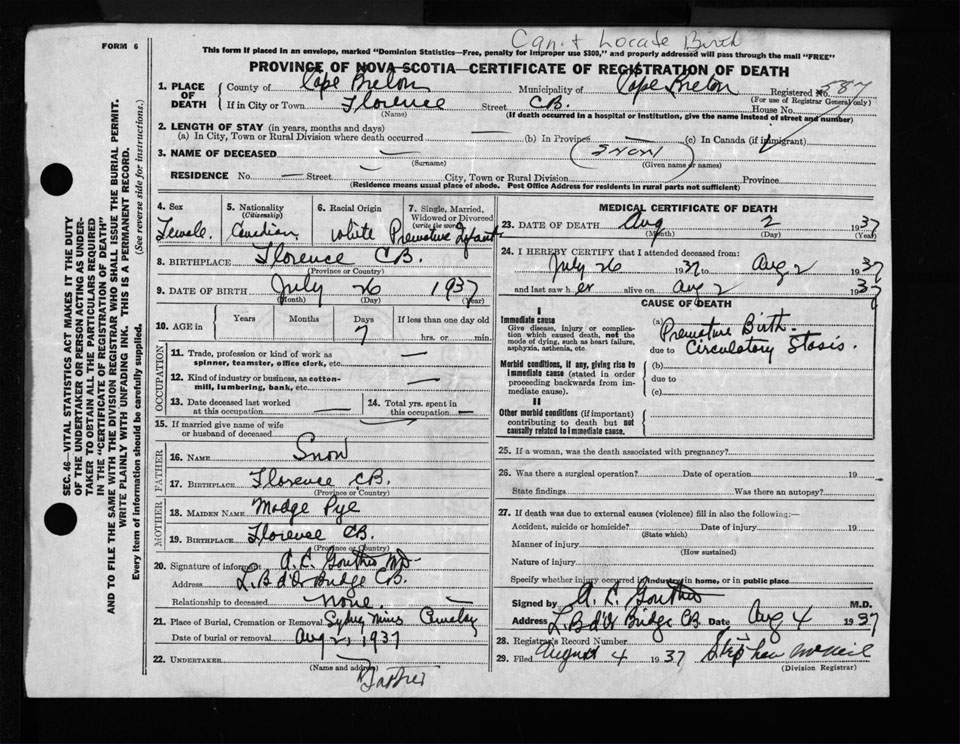 Can't Locate Birth
FORM 6
This form if placed in an envelope, marked "Dominion Statistics—Free, penalty for improper use $300," and properly addressed will pass through the mail "FREE"
PROVINCE OF NOVA SCOTIA—CERTIFICATE OF REGISTRATION OF DEATH
1. PLACE OF DEATH
County of Cape Breton Municipality of Cape Breton Registered No. 587
(For use of Registrar General only)
If in City or Town Florence Street CB. House No.
(Name) (If death occurred in a hospital or institution, give the name instead of street and number)
2. LENGTH OF STAY (in years, months and days)
(a) In City, Town or Rural Division where death occurred — (b) In Province (c) In Canada (if immigrant)
3. NAME OF DECEASED — (SNOW)
(Surname) (Given name or names)
RESIDENCE No. — Street City, Town or Rural Division Province
(Residence means usual place of abode. Post Office Address for residents in rural parts not sufficient)
4. Sex Female.
5. Nationality (Citizenship) Canadian
6. Racial Origin White
7. Single, Married, Widowed or Divorced (write the word) Premature Infant
8. BIRTHPLACE Florence CB.
(Province or Country)
9. DATE OF BIRTH July 26 1937
(Month) (Day) (Year)
10. AGE in Years Months Days If less than one day old
7 hrs. or min.
OCCUPATION
11. Trade, profession or kind of work as spinner, teamster, office clerk, etc. —
12. Kind of industry or business, as cotton-mill, lumbering, bank, etc. —
13. Date deceased last worked at this occupation —
14. Total yrs. spent in this occupation —
15. If married give name of wife or husband of deceased
FATHER
16. NAME Snow
17. BIRTHPLACE Florence CB.
(Province or Country)
MOTHER
18. MAIDEN NAME Madge Pye
19. BIRTHPLACE Florence CB.
(Province or Country)
20. Signature of informant A. L. MD
Address L. B d'Or Bridge CB.
Relationship to deceased none. —
21. Place of Burial, Cremation or Removal Sydney Mines Cemetery
Date of burial or removal Aug 2, 1937
22. UNDERTAKER
(Name and address)
Father
MEDICAL CERTIFICATE OF DEATH
23. DATE OF DEATH Aug 2 1937
(Month) (Day) (Year)
24. I HEREBY CERTIFY that I attended deceased from:
July 26 1937 to Aug 2 1937
and last saw h er alive on Aug 2 1937
CAUSE OF DEATH
I
Immediate cause
Give disease, injury or complication which caused death, not the mode of dying, such as heart failure, asphyxia, asthenia, etc.
(a) Premature Birth.
due to Circulatory Stasis.
Morbid conditions, if any, giving rise to immediate cause (stated in order proceeding backwards from immediate cause).
(b)
due to
(c)
II
Other morbid conditions (if important) contributing to death but not causally related to immediate cause.
25. If a woman, was the death associated with pregnancy?
26. Was there a surgical operation? Date of operation 19
State findings Was there an autopsy?
27. If death was due to external causes (violence) fill in also the following:—
Accident, suicide or homicide? Date of injury 19
(State which)
Manner of injury
(How sustained)
Nature of injury
Specify whether injury occurred in industry in home, or in public place
Signed by A. L. M.D.
Address L. B d'Or Bridge CB. Date Aug 4 1937
28. Registrar's Record Number
29. Filed August 4 1937 Stephen McNeil
(Division Registrar)
SEC. 46—VITAL STATISTICS ACT MAKES IT THE DUTY
OF THE UNDERTAKER OR PERSON ACTING AS UNDER-
TAKER TO OBTAIN ALL THE PARTICULARS REQUIRED
IN THE "CERTIFICATE OF REGISTRATION OF DEATH"
AND TO FILE THE SAME WITH THE DIVISION REGISTRAR WHO SHALL ISSUE THE BURIAL PERMIT.
WRITE PLAINLY WITH UNFADING INK. THIS IS A PERMANENT RECORD.
Every item of information should be carefully supplied. (See reverse side for instructions.)